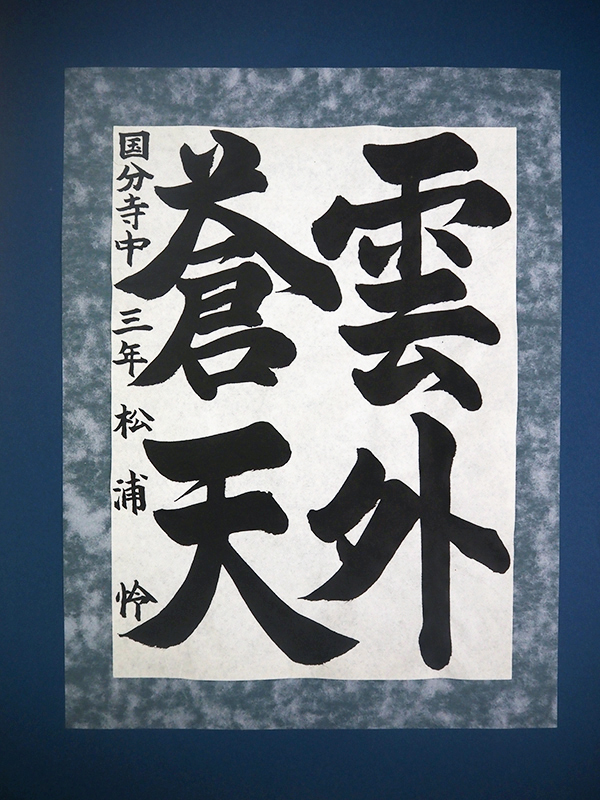 雲外
蒼天
国分寺中 三年 松浦 怜